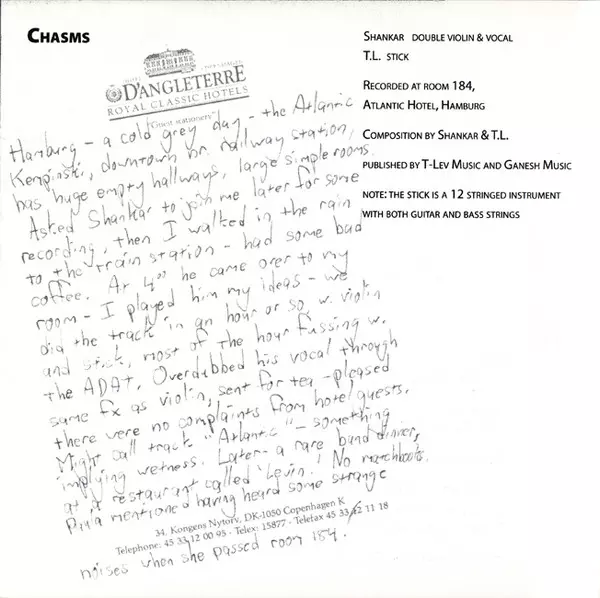 CHASMS
HOTEL
COPENHAGEN
D'ANGLETERRE
ROYAL CLASSIC HOTELS
"Guest stationery"
Hamburg - a cold grey day - the Atlantic
Kempinski, downtown nr. railway station,
has huge empty hallways, large simple rooms.
Asked Shankar to join me later for some
recording, then I walked in the rain
to the train station - had some bad
coffee. At 4°° he came over to my
room - I played him my ideas - we
did the track in an hour or so, w. violin
and stick, most of the hour fussing w.
the ADAT. Overdubbed his vocal through
same fx as violin, sent for tea - pleased
there were no complaints from hotel guests.
Might call track "Atlantic" - something
implying wetness. Later - a rare band dinner,
at a restaurant called 'Levin'. No matchbooks.
Paula mentioned having heard some strange
34, Kongens Nytorv, DK-1050 Copenhagen K
Telephone: 45 33 12 00 95 · Telex: 15877 · Telefax 45 33 12 11 18
noises when she passed room 184.
SHANKAR DOUBLE VIOLIN & VOCAL
T.L. STICK
RECORDED AT ROOM 184,
ATLANTIC HOTEL, HAMBURG
COMPOSITION BY SHANKAR & T.L.
PUBLISHED BY T-LEV MUSIC AND GANESH MUSIC
NOTE: THE STICK IS A 12 STRINGED INSTRUMENT
WITH BOTH GUITAR AND BASS STRINGS